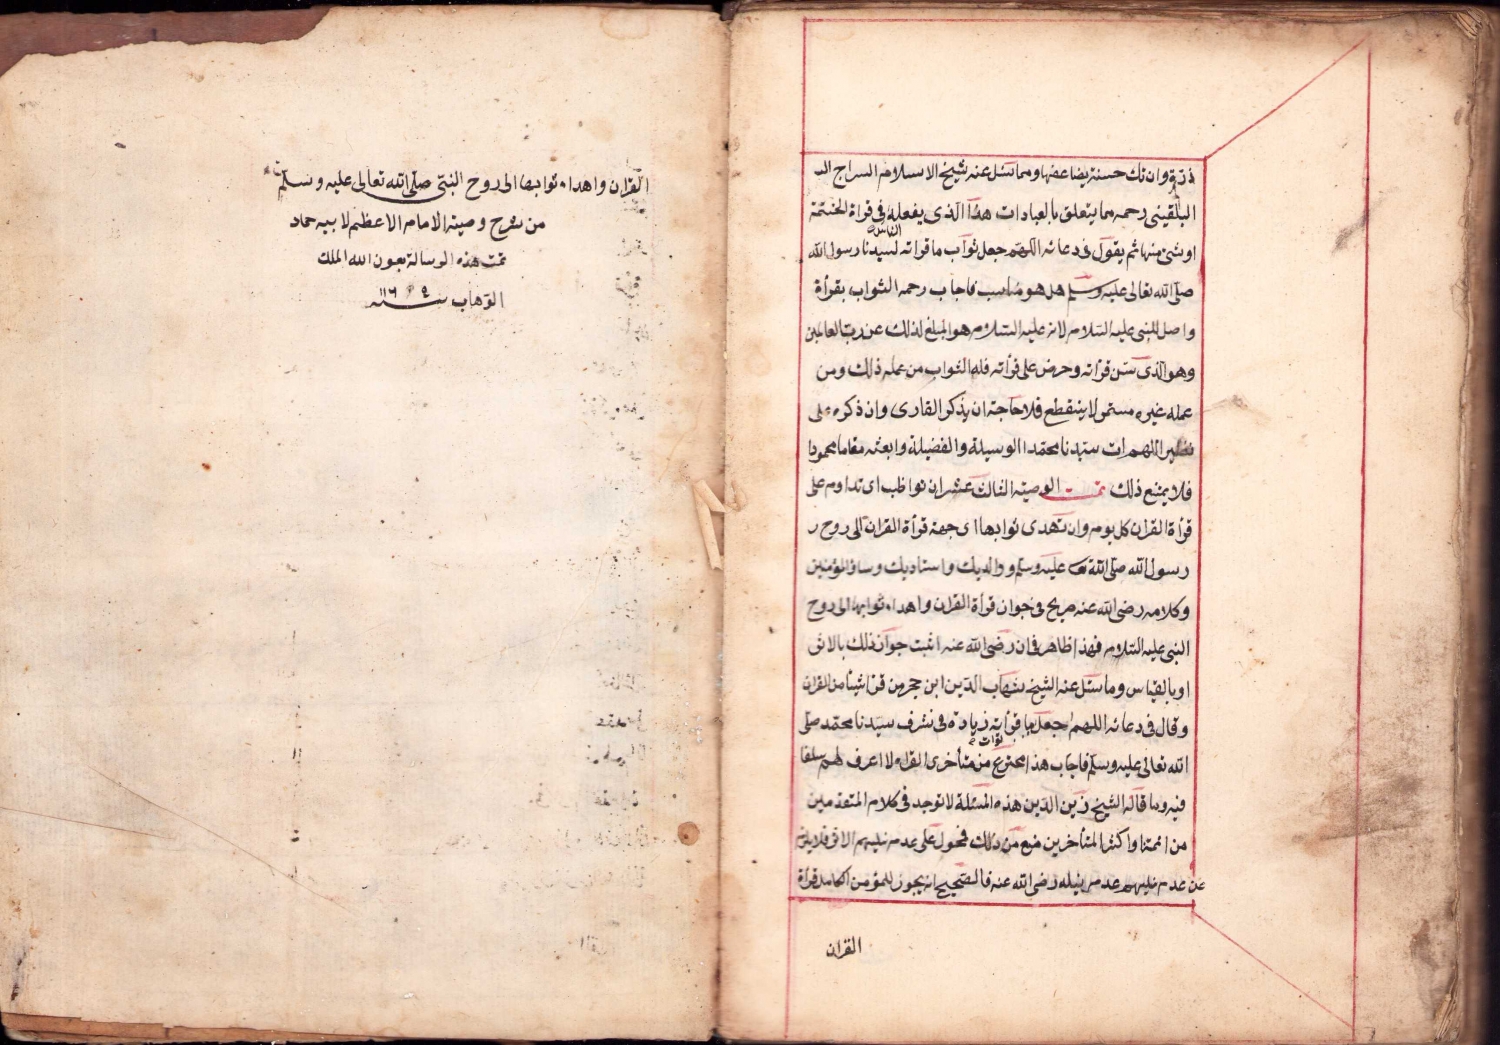 ذرة وان تك حسنة يضاعفها ومما سئل عنه شيخ الاسلام السراج الد
البلقيني رحمه مما يتعلق بالعبادات هذا الذي يفعله الناس في قرأة الختمة
او شئ منها ثم يقول في دعائه اللهم جعل ثواب ما قرأته لسيدنا رسول الله
صلى الله تعالى عليه وسلم هل هو مناسب فاجاب رحمه الثواب بقرأة
واصل للنبي عليه السلام لانه عليه السلام هو المبلغ لذلك عن رب العالمين
وهو الذي سن قرأته وحرض على قرأته فله الثواب من عمله ذلك ومن
عمله غيره مستمر لا ينقطع فلا حاجة ان يذكر القارى وان ذكره على
نظير اللهم ات سيدنا محمدا الوسيلة والفضيلة وابعثه مقاما محمودا
فلا يمنع ذلك تمت الوصية الثالث عشر ان تواظب اى تداوم على
قرأة القران كل يوم وان تهدى ثوابها اى جهة قرأة القران الى روح ر
رسول الله صلى الله عليه وسلم ووالديك واستاديك وسائر المؤمنين
وكلامه رضى الله عنه صريح في جواز قرأة القران واهداء ثوابها الى روح
النبى عليه السلام فهذا ظاهر في ان رضى الله عنه اثبت جواز ذلك بالاثر
او بالقياس وما سئل عنه الشيخ شهاب الدين ابن حجر من قرأ شيئا من القران
وقال في دعائه اللهم اجعل ثواب ما قرأته زيادة في شرف سيدنا محمد صلى
الله تعالى عليه وسلم فاجاب هذا مخترع من متأخرى القراء لا اعرف لهم سلفا
فيه وما قاله الشيخ زين الدين هذه المسئلة لا توجد في كلام المتقدمين
من ائمتنا واكثر المتأخرين منع من ذلك فمحول على عدم نيلهم الاثر فلا يلزم
عن عدم نيلهم عدم نيله رضى الله عنه فالصحيح انه يجوز للمؤمن الكامل قرأة
القران
القران واهداء ثوابها الى روح النبي صلى الله تعالى عليه وسلم
من شرح وصية الامام الاعظم لابيه حماد
تمت هذه الرسالة بعون الله الملك
الوهاب سنة